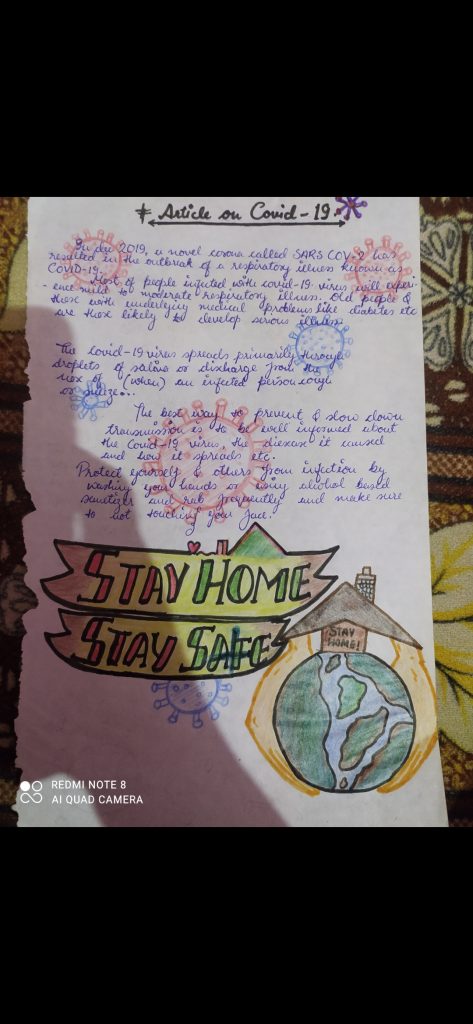 # Article on Covid-19 *
In dec 2019, a novel corona called SARS COV-2 has
resulted in the outbreak of a respiratory illness known as
COVID-19.
- Most of people infected with covid-19 virus will experi-
ence mild to moderate respiratory illness. Old people &
those with underlying medical problems like diabetes etc
are those likely to develop serious illness.
The covid-19 virus spreads primarily through
droplets of saliva or discharge from the
nox of (when) an infected person cough
or sneize...
The best way to prevent & slow down
transmission is to be well informed about
the Covid-19 virus, the diesease it caused
and how it spreads etc.
Protect yourself & others from infection by
washing your hands or using alcohol based
sanitizer and rub frequently and make sure
to not touching your face.
STAY HOME
STAY SAFE
STAY
HOME!
REDMI NOTE 8
AI QUAD CAMERA